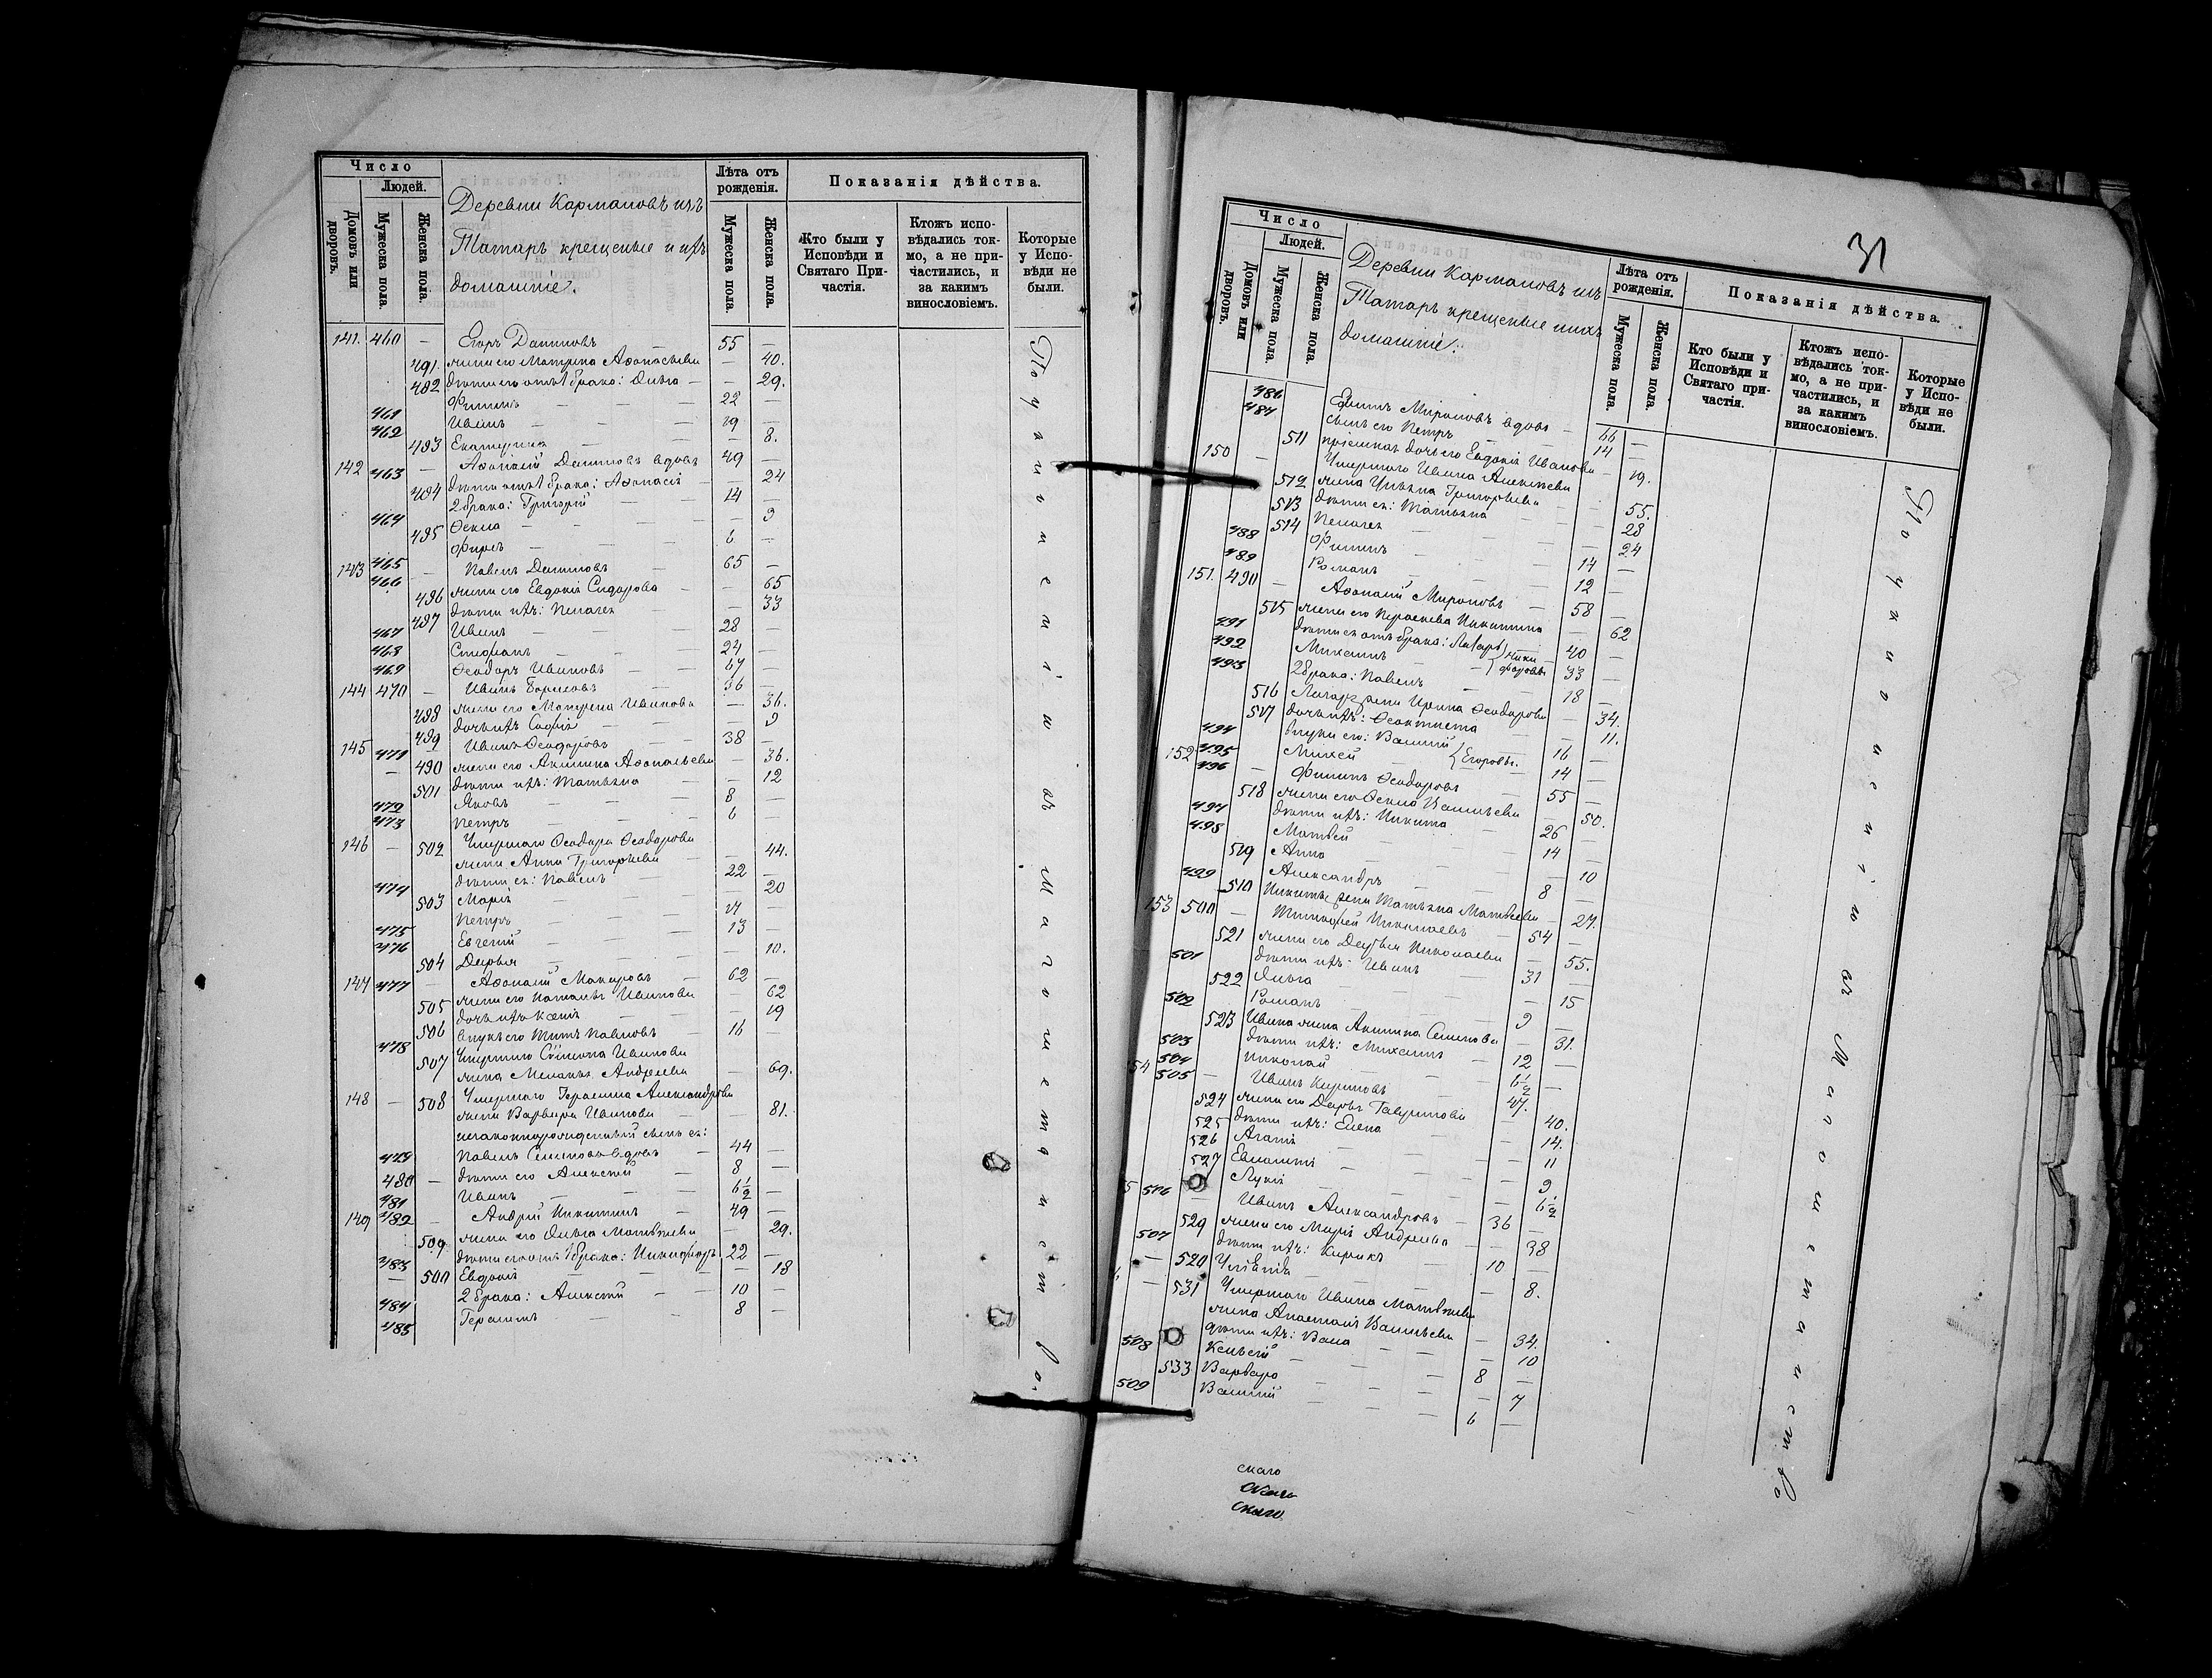 Число
Людей.
Домовъ или дворовъ.
Мужеска пола.
Женска пола.
Деревни Кармановъ изъ
Татаръ крещеные и ихъ
домашніе.
Лѣта отъ рожденія.
Мужеска пола.
Женска пола.
Показанія дѣйства.
Кто были у Исповѣди и Святаго Причастія.
Ктожъ исповѣдались токмо, а не причастились, и за какимъ винословіемъ.
Которые у Исповѣди не были.
141. 460 — Егоръ Даниловъ 55 —
491. жена его Матрена Афонасьева — 40.
492 дѣти его отъ 1 брака: Ольга — — 29.
461 Филиппъ 22 —
462 Иванъ 19 —
493 Екатерина — 8.
142 463 — Афонасій Даниловъ вдовъ 49 —
494 дѣти отъ 1 брака: — 24
464 2 брака: Григорій 14 —
495 Ѳекла — 9
465 Фирсъ 6 —
143 466 — Павелъ Даниловъ 65 —
496 жена его Евдокія Сидорова — 65
497 дѣти ихъ: Пелагея — 33
467 Иванъ 28 —
468 Степанъ 24 —
469 Ѳеодоръ Ивановъ 67 —
144 470 — Иванъ Борисовъ 36 —
498 жена его Матрена Иванова — 36.
499 дочь ихъ Софія — 9
145 471 — Иванъ Ѳеодоровъ 38 —
490 жена его Акилина Афонасьева — 36.
501 дѣти ихъ: Татьяна — 12
472 Яковъ 8 —
473 Петръ 6 —
146 — 502 Умершаго Ѳеодора Ѳеодорова
жена Анна Григорьева — 44.
474 дѣти ея: Павелъ 22 —
503 Марія — 20
475 Петръ 17 —
476 Евгеній 13 —
504 Дарья — 10.
147 477 — Афонасій Макаровъ 62 —
505 жена его Наталья Иванова — 62
506 дочь ихъ Ксенія — 19
478 внукъ его Титъ Павловъ 16 —
507 Умершаго Симеона Иванова
жена Меланья Андреева — 69.
148 — 508 Умершаго Герасима Александрова
жена Варвара Иванова — 81.
незаконнорожденный сынъ ея:
479 Павелъ Семеновъ вдовъ 44 —
480 — дѣти его Алексѣй 8 —
481 Иванъ 6½ —
149 482 — Андрей Никитинъ 49 —
509. жена его Ольга Матвѣева 29.
483 дѣти его отъ 1 брака: Никифоръ 22 —
— 500 Евдокія — 18
484 2 брака: Алексѣй 10 —
485 Герасимъ 8 —
По упущенію и за малолѣтство.
31
Число
Людей.
Домовъ или дворовъ.
Мужеска пола.
Женска пола.
Деревни Кармановъ изъ
Татаръ крещеные и ихъ
домашніе.
Лѣта отъ рожденія.
Мужеска пола.
Женска пола.
Показанія дѣйства.
Кто были у Исповѣди и Святаго причастія.
Ктожъ исповѣдались токмо, а не причастились, и за какимъ винословіемъ.
Которые у Исповѣди не были.
486 Мироновъ вдовъ 66 —
487 сынъ его Петръ 14 —
511 дочь его Евдокія Иванова — 19.
150 — Умершаго Ивана Алексѣева
512 жена Ульяна Григорьева — 55.
513 дѣти ея: Татьяна — 28
514 Пелагея — 24
488 Филиппъ 14 —
489 Романъ 12 —
151. 490 — Афонасій Мироновъ 58 —
515 жена его Параскева Никитина — 62
491 дѣти ея отъ брака: 40 —
492 Михаилъ 33 —
493 2 брака: Павелъ 18 —
516 жена Ирина Ѳеодорова — 34.
517 дочь ихъ: Ѳеоктиста — 11.
494 внуки его: Василій 16 —
495 Михей } Егоровы. 14 —
152 496 — Филиппъ Ѳеодоровъ 55 —
518 жена его Ѳекла Васильева — 50.
497 дѣти ихъ: Никита 26 —
498 Матвей 14 —
519 Анна — 10
499 Александръ 8 —
510 Никиты жена Татьяна Матвеева — 27.
153 500 — Тимофей Николаевъ 54 —
521 жена его Дарья Николаева — 55.
501 дѣти ихъ: Иванъ 31 —
522 Ольга — 15
502 Романъ 9 —
523 Ивана жена Акилина Семенова — 31.
503 дѣти ихъ: Михаилъ 12 —
504 Николай 6½ —
54 505 — Иванъ Кириловъ 47. —
524 жена его Дарья Гаврилова — 40.
525 дѣти ихъ: Елена — 14.
526 Агафія — 11
527 — 9
Лукія — 6½
55 506 Иванъ Александровъ 36 —
529 жена его Марія Андреева — 38
507 дѣти ихъ: Кирикъ 10 —
— 520 — 8.
— 531 Умершаго Ивана Матвѣева
жена Анастасія Васильева — 34.
дѣти ихъ: — 10
508 8 —
533 Варвара — 7
509 Василій 6 —
По упущенію и за малолѣтство
скаго
скаго